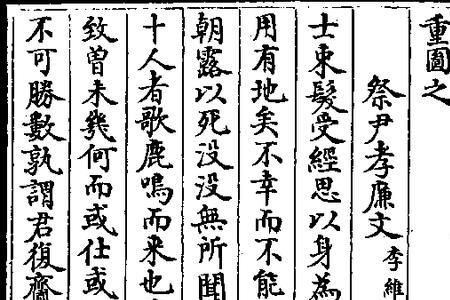 重圖之
祭尹孝廉文 李維
士束髮受經思以身為
用有地矣不幸而不能
朝露以死没没無所聞
十人者歌鹿鳴而来也
致曽未幾何而或仕或
不可勝數孰謂君復齎